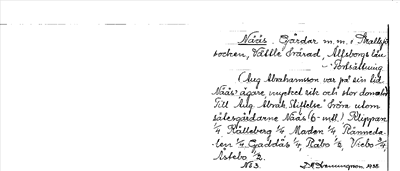 Nääs. Gårdar m.m. i Skallsjö
socken, Vättle härad, Älfsborgs län
Fortsättning
(Aug Abrahamsson var på sin tid
Nääs' ägare, mycket rik och stor donator
Till Aug Abrah. Stiftelse höra utom
säteSgårdarne Nääs (6 mtl.) Klippan
1/4 Kålleberg 1/4 Maden 1/4 Rännedalen
1/4 Gaddås 1/4, Råbo 1/2, Viebo 3/4,
Åstebo 1/2.
No 3.
1938